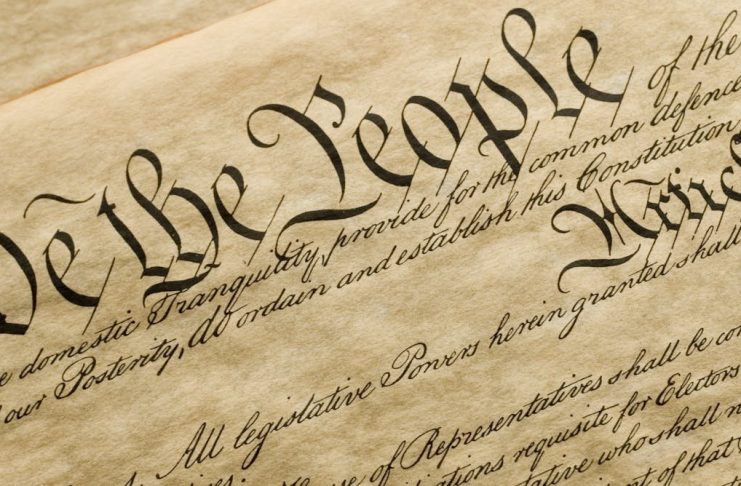 We the People of the
domestic Tranquility, provide for the common defence
our Posterity, do ordain and establish this Constitution
Article
All legislative Powers herein granted shall
of Representatives shall be
requisite for Electors
who shall
of that